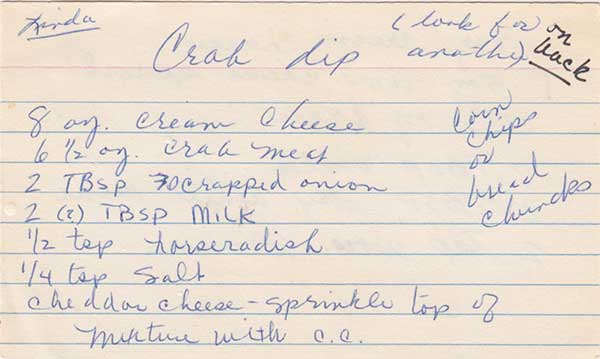 Linda
(look for
another on
back
Crab dip
8 oz. cream cheese
6 1/2 oz. crab meat
2 TBSP scrapped onion
2 (?) TBSP MILK
1/2 tsp horseradish
1/4 tsp salt
cheddar cheese - sprinkle top of
mixture with c.c.
corn
chips
or
bread
chuncks